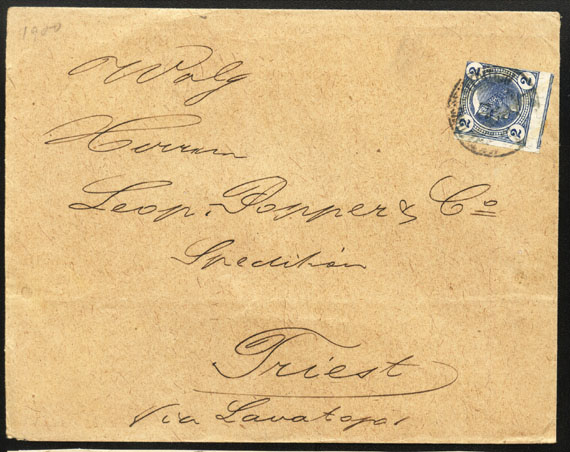 1900
Wolg
Herren
Leop. Popper & Co
Spedition
Triest
Via Lavatojo 1
2 2
2 2